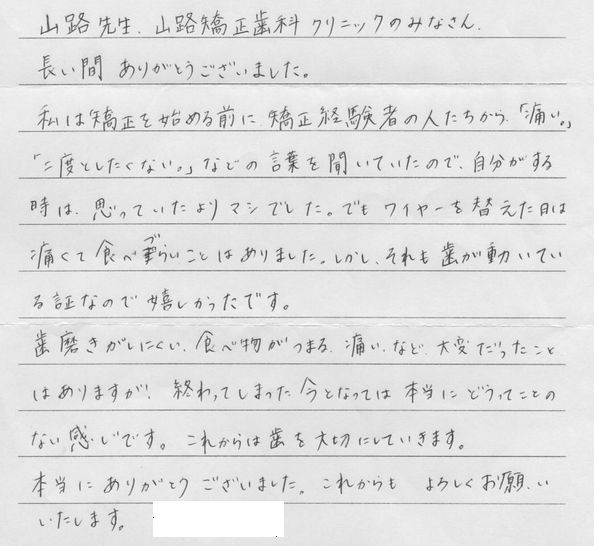 山路先生、山路矯正歯科クリニックのみなさん、
長い間 ありがとうございました。
私は矯正を始める前に、矯正経験者の人たちから、「痛い。」
「二度としたくない。」などの言葉を聞いていたので、自分がする
時は、思っていたよりマシでした。でもワイヤーを替えた日は
痛くて食べ難らいことはありました。しかし、それも歯が動いてい
づ
る証なので嬉しかったです。
歯磨きがしにくい、食べ物がつまる、痛い、など、大変だったこと
はありますが、終わってしまった今となっては本当にどうってことの
ない感じです。これからは歯を大切にしていきます。
本当にありがとうございました。これからも よろしくお願い
いたします。